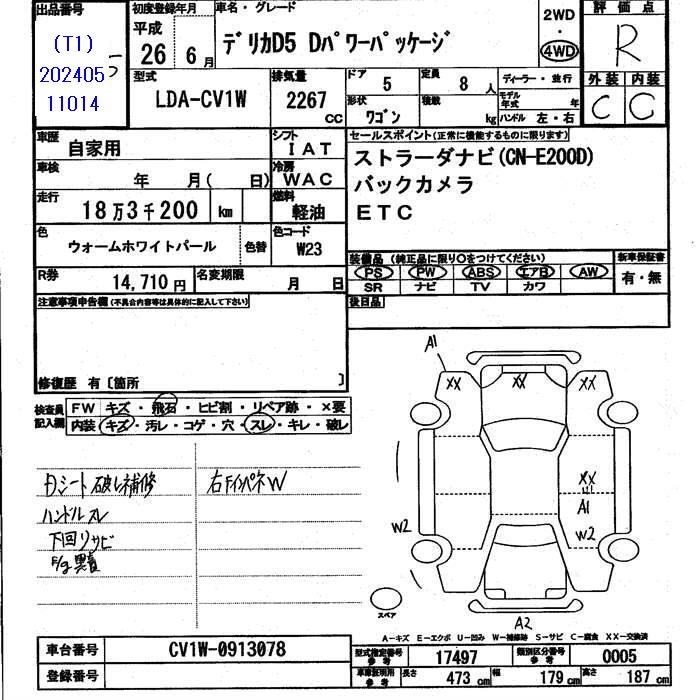 出品番号
(T1)
202405
11014
初度登録年月
平成
26年 6月
車名・グレード
デリカD5 Dパワーパッケージ
2WD
・
4WD
評価点
R
型式
LDA-CV1W
排気量
2267
CC
ドア
5
定員
8人
形状
ワゴン
積載
kg
ディーラー・並行
モデル年式 年
ハンドル 左・右
外装 内装
C C
車歴
自家用
シフト
IAT
車検
年 月( 日)
冷房
WAC
走行
18万3千200 km
燃料
軽油
色
ウォームホワイトパール
色替
色コード
W23
R券
14,710円
名変期限
月 日
セールスポイント(正常に機能するものに限ります)
ストラーダナビ(CN-E200D)
バックカメラ
ETC
装備品 (純正品に限り○をつけてください)
PS PW ABS エアB AW
SR ナビ TV カワ
新車保証書
有・無
後日品
注意事項申告欄(不具合内容等は具体的に記入して下さい)
修復歴 有〔箇所 〕
検査員
記入欄
FW キズ・飛石・ヒビ割・リペア跡・×要
内装 キズ・汚レ・コゲ・穴・スレ・キレ・破レ
Dシート破レ補修
ハンドルスレ
下回リサビ
右FインパネW
A1
XX XX XX
XX
A1
W2 W2
A2
スペア
A-キズ E-エクボ U-凹み W-補修跡 S-サビ C-腐食 XX-交換済
車台番号
CV1W-0913078
登録番号
型式指定番号
参考
17497
類別区分番号
参考
0005
車庫証明用
参考
長さ 473cm
幅 179cm
高さ 187cm